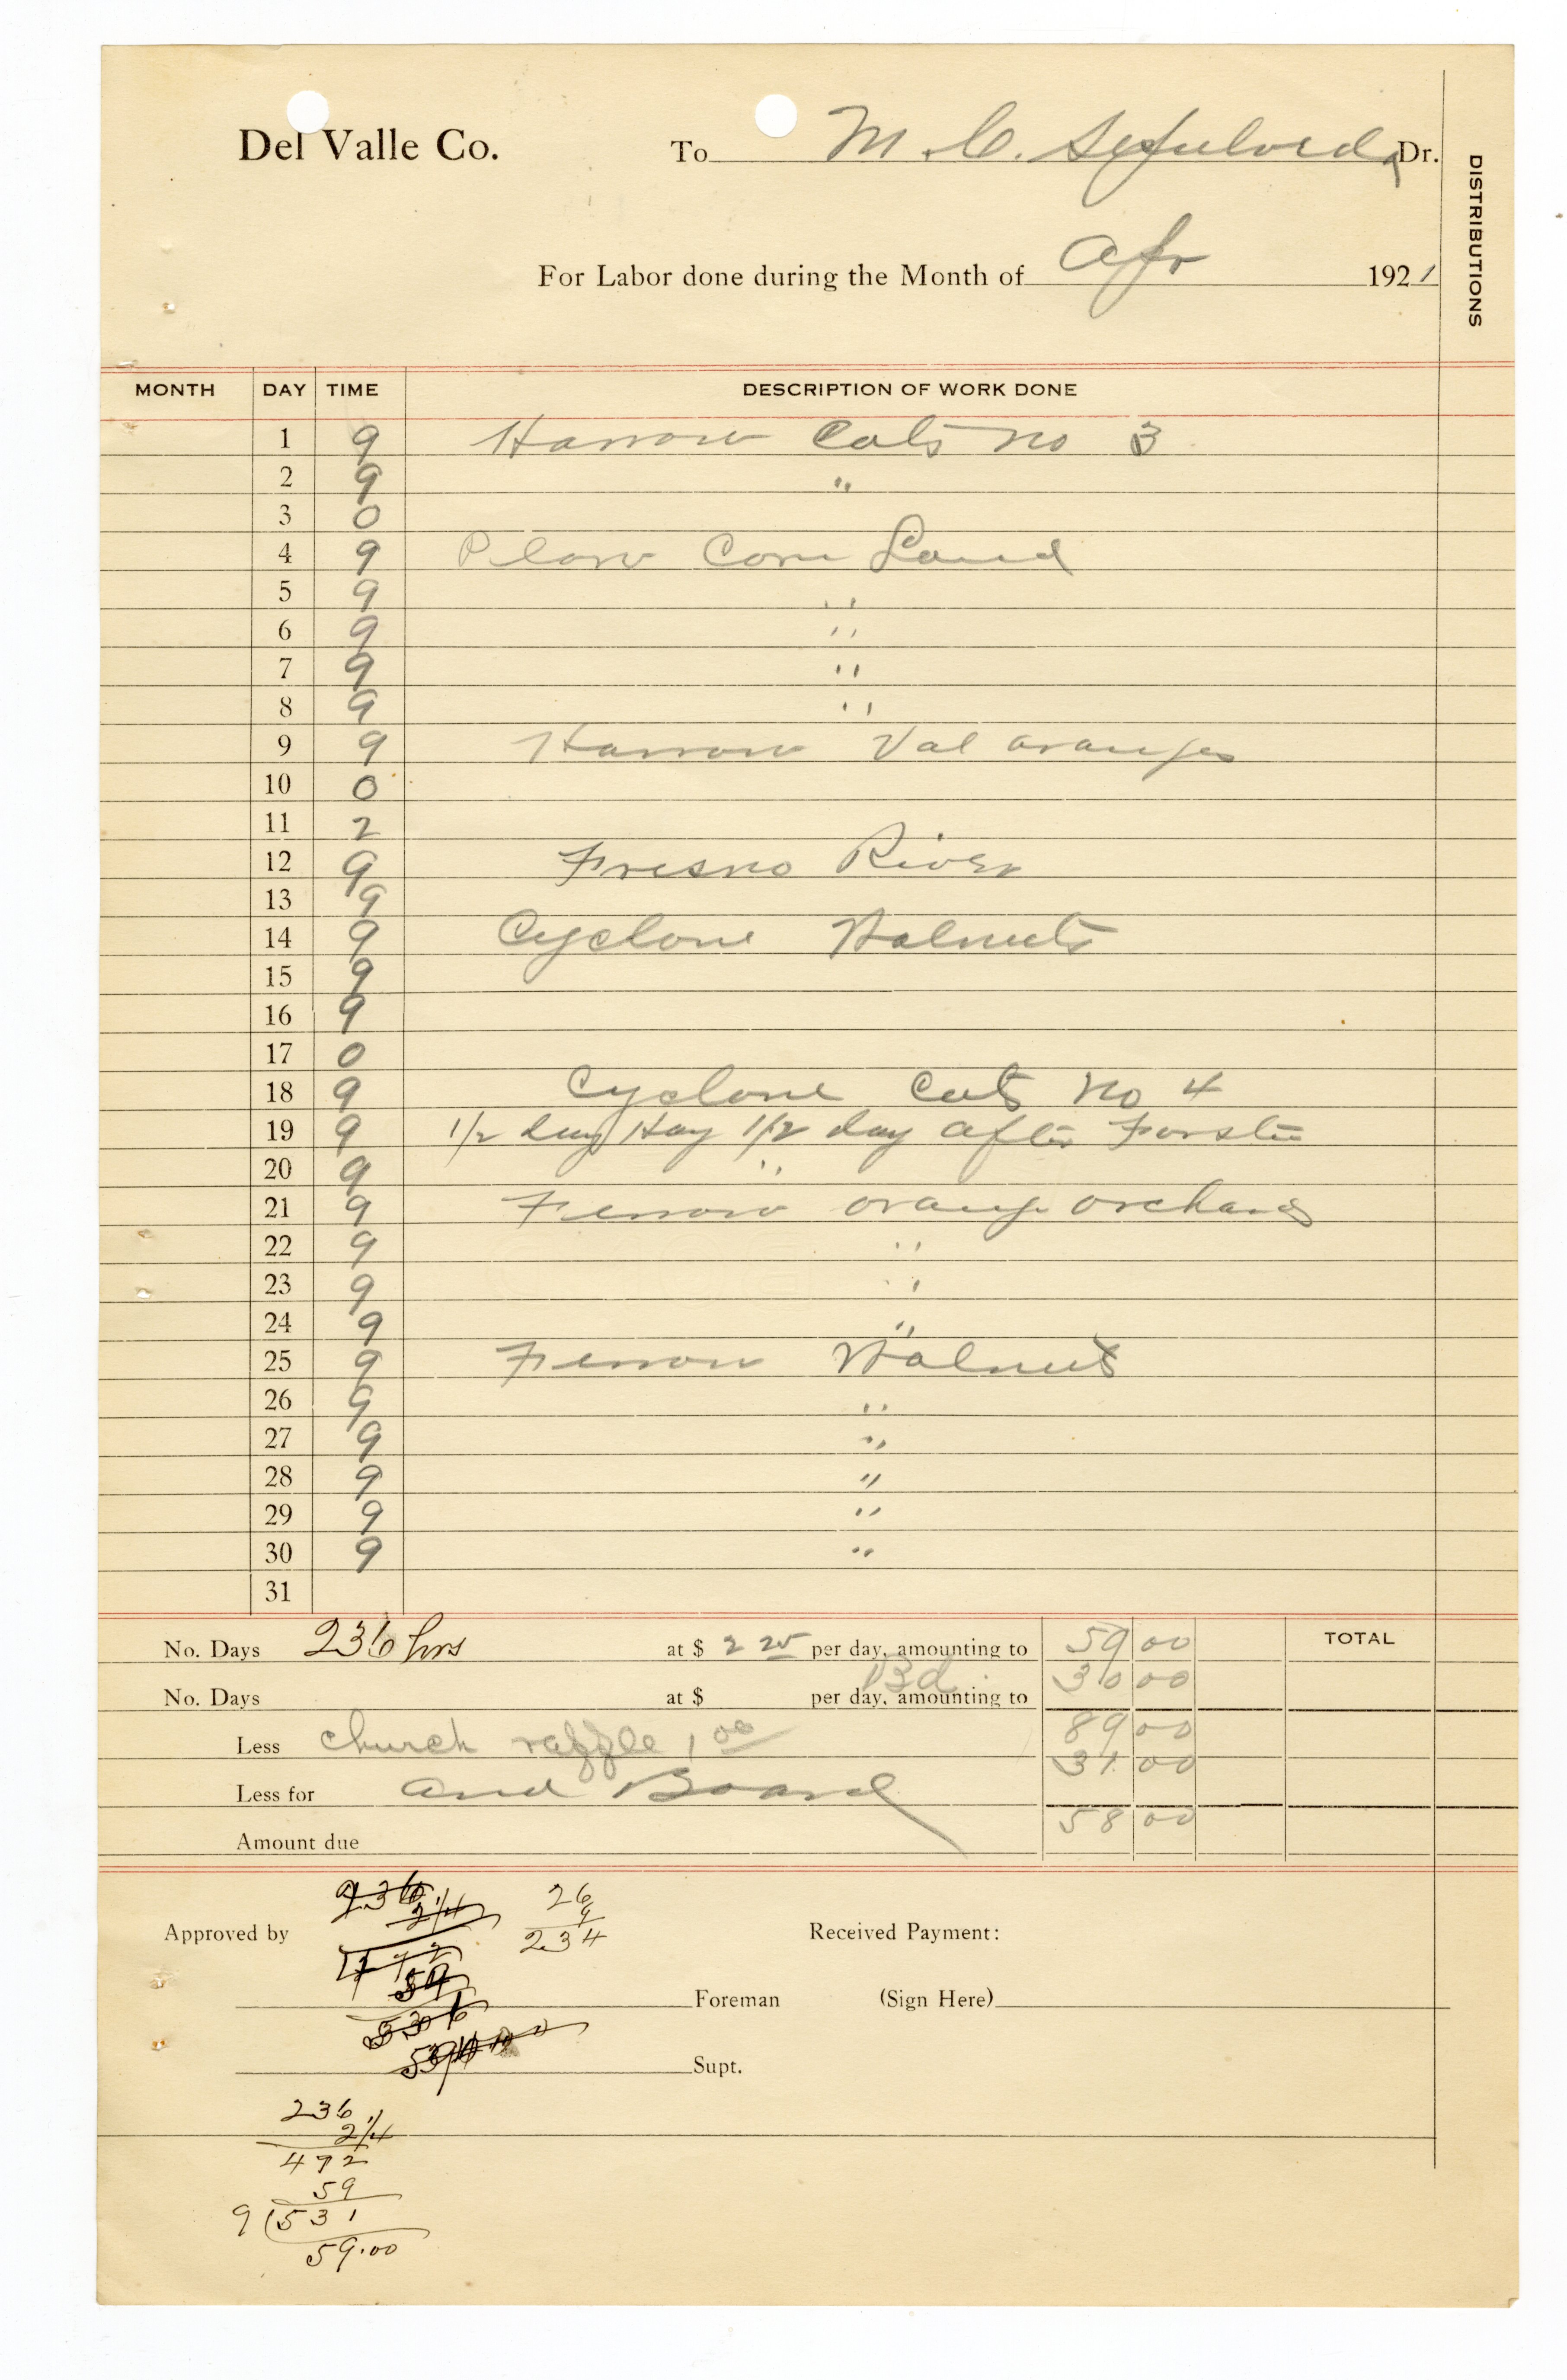 Del Valle Co. To M. C. Sepulveda Dr.
DISTRIBUTIONS
For Labor done during the Month of Apr 1921
MONTH DAY TIME DESCRIPTION OF WORK DONE
1 9 Harrow Cats no 3
2 9 "
3 0
4 9 Plow Corn Land
5 9 "
6 9 "
7 9 "
8 9 "
9 9 Harrow Val oranges
10 0
11 2
12 9 Fresno River
13 9
14 9 Cyclone Walnuts
15 9
16 9
17 0
18 9 Cyclone Cats no 4
19 9 1/2 day Hay 1/2 day after
20 9 "
21 9 Ferrow orange orchard
22 9 "
23 9 "
24 9 "
25 9 Ferrow Walnuts
26 9 "
27 9 "
28 9 "
29 9 "
30 9 "
31
No. Days 236 hrs at $ 2 25 per day, amounting to 59 00 TOTAL
Bd
No. Days at $ per day, amounting to 30 00
89 00
Less church raffle 1 00
31 00
Less for and Board
58 00
Amount due
236 26
2 1/4 9
Approved by 234 Received Payment:
59
Foreman (Sign Here)
Supt.
236
2 1/4
472
59
9 (531
59.00